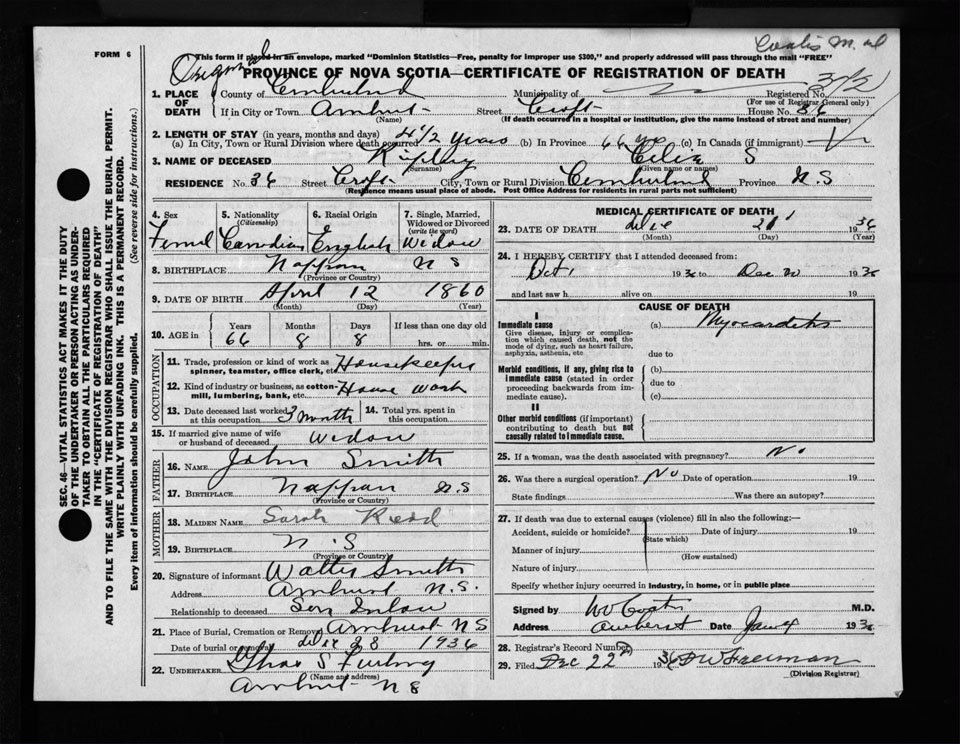 FORM 6
This form if placed in an envelope, marked "Dominion Statistics—Free, penalty for improper use $300," and properly addressed will pass through the mail "FREE"
Original
PROVINCE OF NOVA SCOTIA—CERTIFICATE OF REGISTRATION OF DEATH
1. PLACE OF DEATH
County of Cumberland Municipality of Registered No.
(For use of Registrar General only)
If in City or Town Amherst Street Croft House No. 36
(Name) (If death occurred in a hospital or institution, give the name instead of street and number)
2. LENGTH OF STAY (in years, months and days)
(a) In City, Town or Rural Division where death occurred 4 1/2 years (b) In Province 66 yrs (c) In Canada (if immigrant)
3. NAME OF DECEASED Ripley Celia S
(Surname) (Given name or names)
RESIDENCE No. 36 Street Croft City, Town or Rural Division Cumberland Province N.S
(Residence means usual place of abode. Post Office Address for residents in rural parts not sufficient)
4. Sex 5. Nationality (Citizenship) 6. Racial Origin 7. Single, Married, Widowed or Divorced (write the word)
Femal Canadian English Widow
8. BIRTHPLACE Nappan N S
(Province or Country)
9. DATE OF BIRTH April 12 1860
(Month) (Day) (Year)
10. AGE in Years Months Days If less than one day old
66 8 8 hrs. or min.
OCCUPATION
11. Trade, profession or kind of work as spinner, teamster, office clerk, etc. Housekeeper
12. Kind of industry or business, as cotton-mill, lumbering, bank, etc. House Work
13. Date deceased last worked at this occupation 3 Month 14. Total yrs. spent in this occupation
15. If married give name of wife or husband of deceased Widow
FATHER
16. NAME John Smith
17. BIRTHPLACE Nappan N.S
(Province or Country)
MOTHER
18. MAIDEN NAME Sarah Read
19. BIRTHPLACE N.S
(Province or Country)
20. Signature of informant Walter Smith
Address Amherst N.S.
Relationship to deceased Son Inlaw
21. Place of Burial, Cremation or Removal Amherst N S
Date of burial or removal 23 1936
22. UNDERTAKER Chas S Furlong
(Name and address)
Amherst N S
MEDICAL CERTIFICATE OF DEATH
23. DATE OF DEATH Dec 21 1936
(Month) (Day) (Year)
24. I HEREBY CERTIFY that I attended deceased from:
Oct 1 1936 to Dec 20 1936
and last saw h alive on 19
CAUSE OF DEATH
I
Immediate cause
Give disease, injury or complication which caused death, not the mode of dying, such as heart failure, asphyxia, asthenia, etc
(a) Myocarditis
due to
Morbid conditions, if any, giving rise to immediate cause (stated in order proceeding backwards from immediate cause).
(b)
due to
(c)
II
Other morbid conditions (if important) contributing to death but not causally related to immediate cause.
25. If a woman, was the death associated with pregnancy? No
26. Was there a surgical operation? No Date of operation 19
State findings Was there an autopsy?
27. If death was due to external causes (violence) fill in also the following:—
Accident, suicide or homicide? Date of injury 19
(State which)
Manner of injury
(How sustained)
Nature of injury
Specify whether injury occurred in industry, in home, or in public place
Signed by M.D.
Address Amherst Date Jan 4 193
28. Registrar's Record Number
29. Filed Dec 22nd 1936 Freeman
(Division Registrar)
SEC. 46—VITAL STATISTICS ACT MAKES IT THE DUTY
OF THE UNDERTAKER OR PERSON ACTING AS UNDER-
TAKER TO OBTAIN ALL THE PARTICULARS REQUIRED
IN THE "CERTIFICATE OF REGISTRATION OF DEATH"
AND TO FILE THE SAME WITH THE DIVISION REGISTRAR WHO SHALL ISSUE THE BURIAL PERMIT.
WRITE PLAINLY WITH UNFADING INK. THIS IS A PERMANENT RECORD.
Every item of information should be carefully supplied. (See reverse side for instructions.)